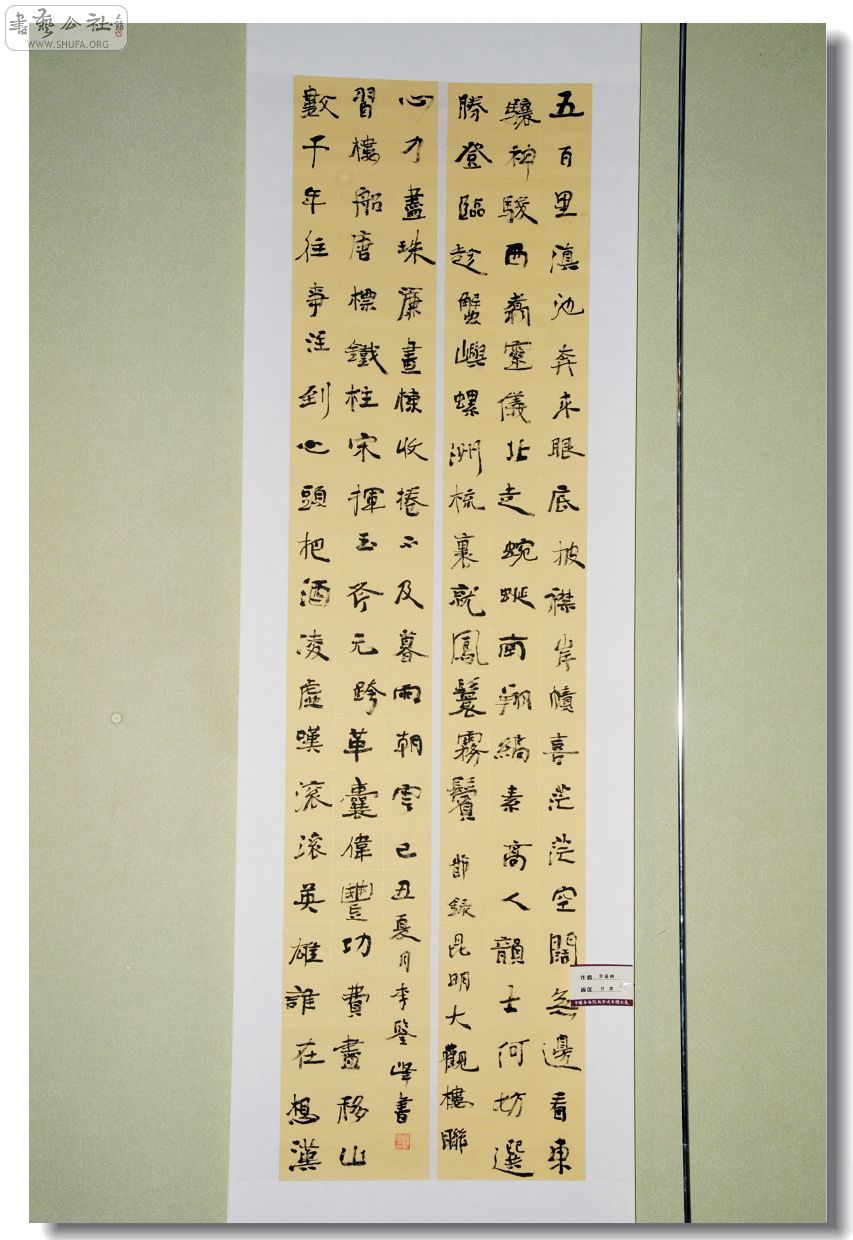 書藝公社
WWW.SHUFA.ORG
五百里滇池奔來眼底披襟岸幘喜茫茫空闊無邊看東
驤神駿西翥靈儀北走蜿蜒南翔縞素高人韻士何妨選
勝登臨趁蟹嶼螺洲梳裹就鳳鬟霧鬢 節錄昆明大觀樓聯
數千年往事注到心頭把酒凌虛嘆滾滾英雄誰在想漢
習樓船唐標鐵柱宋揮玉斧元跨革囊偉豐功費盡移山
心力盡珠簾畫棟收捲不及暮雨朝雲 己丑夏月李鑒峰書